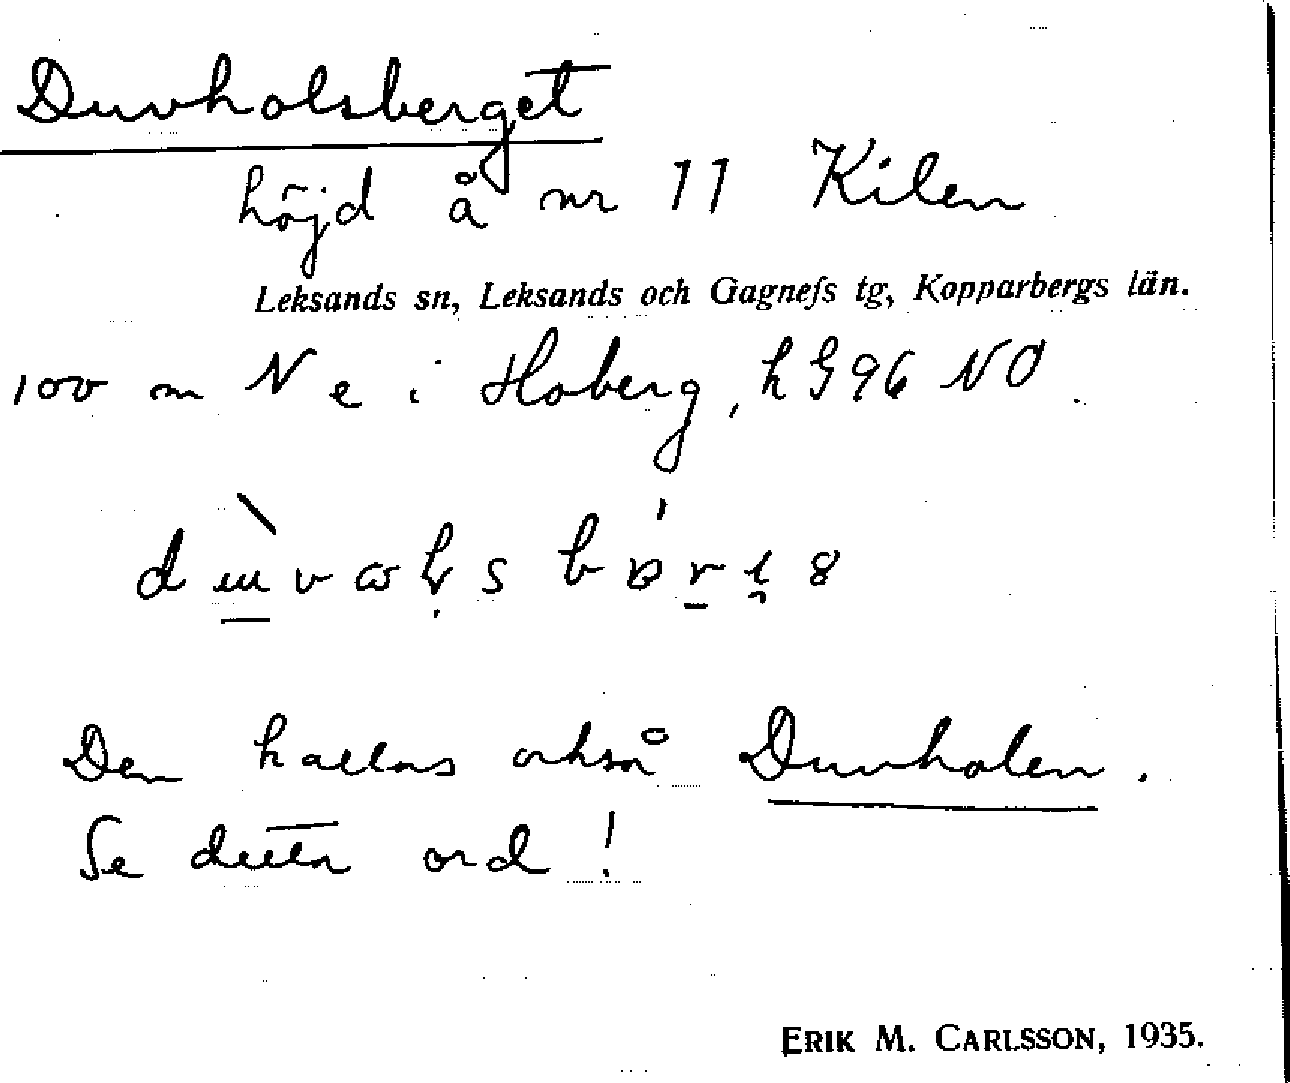 Duvholsberget
höjd å nr 11 Kilen
Leksands sn, Leksands och Gagnefs tg, Kopparbergs län.
100 m N e i Hoberg, h G 96 NO.
Den kallas också Duvholen.
Se detta ord!
ERIK M. CARLSSON, 1935.